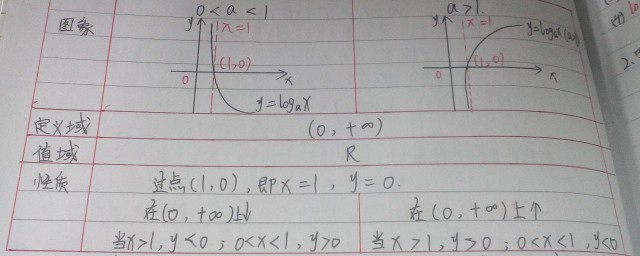 0<a<1
a>1
图象
y
x=1
(1,0)
0
x
y=logax
y
x=1
y=logax(a>1)
(1,0)
0
x
定义域
(0,+∞)
值域
R
性质
过点(1,0),即x=1,y=0.
在(0,+∞)上↓
在(0,+∞)上↑
当x>1,y<0;0<x<1,y>0
当x>1,y>0;0<x<1,y<0
2.